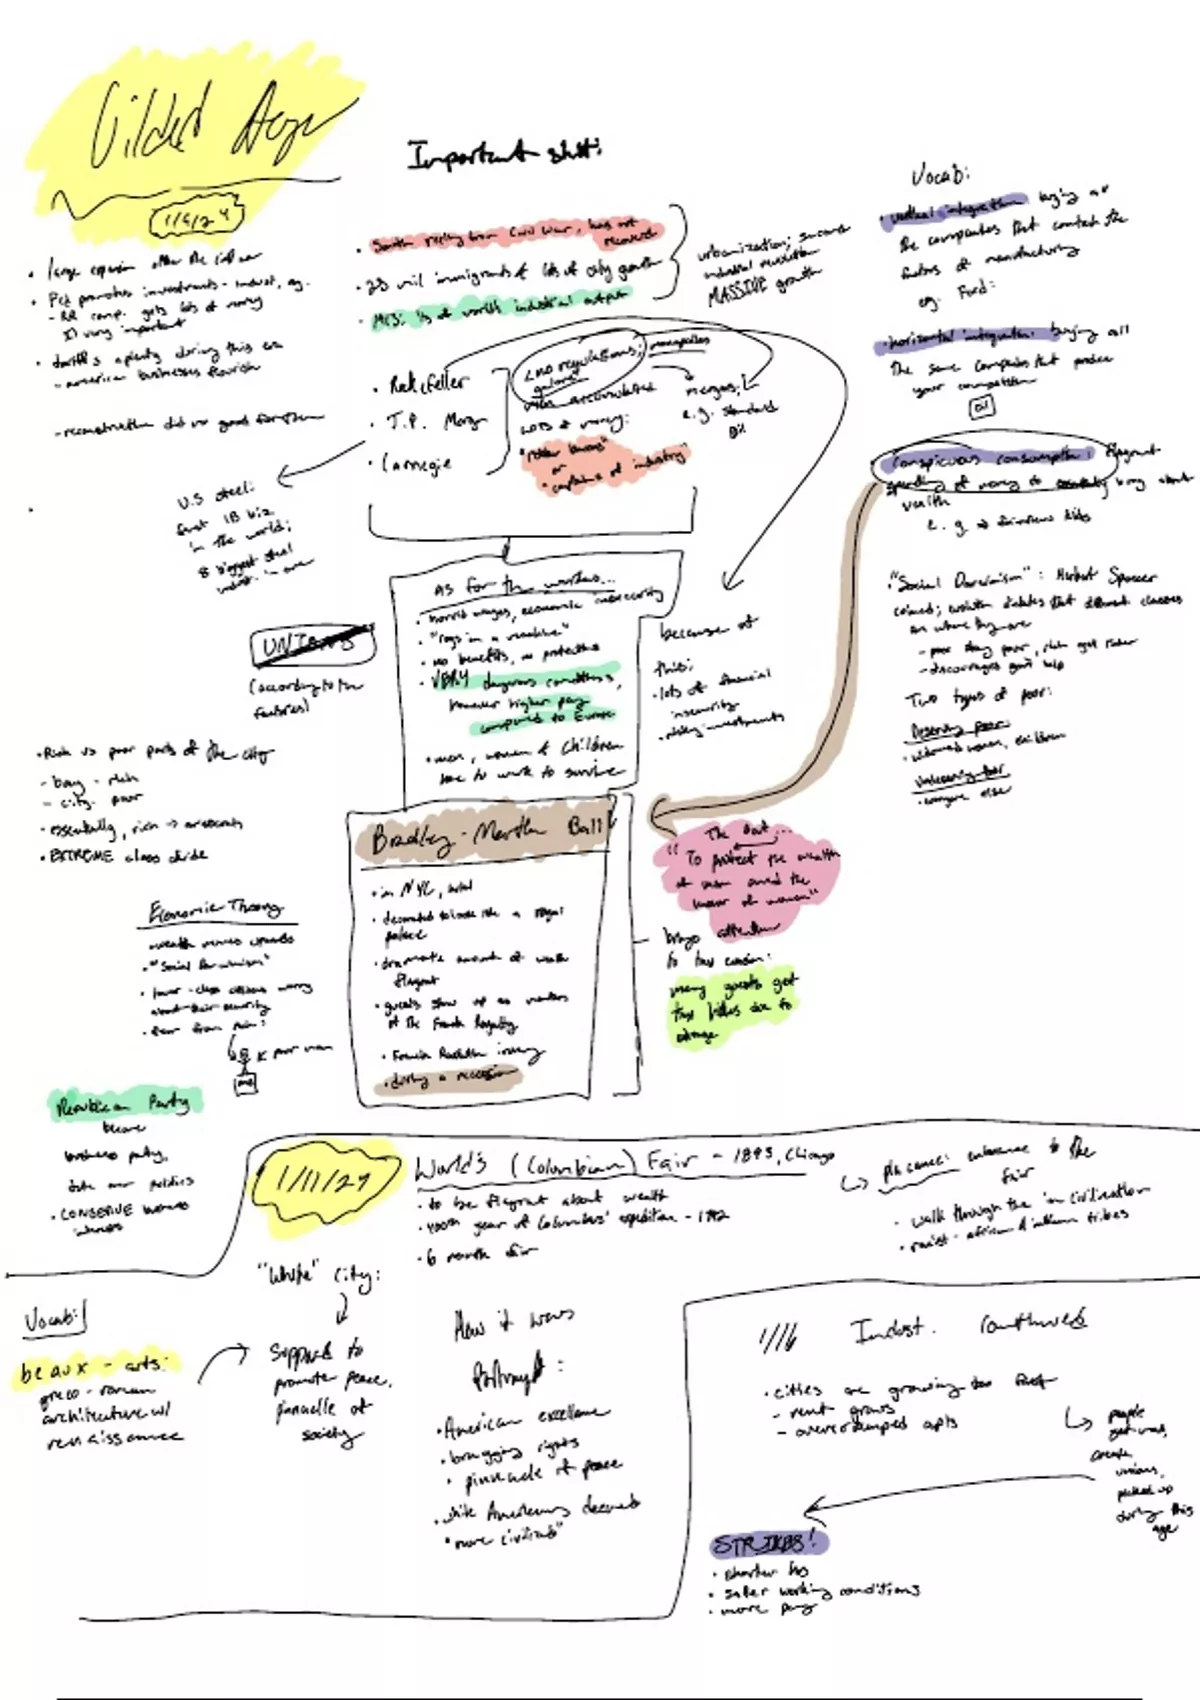 Gilded Age
1/9/24
• large expansion after the civil war
- RR comp. gets lots of money
very important
• tariffs aplenty during this era
- american businesses flourish
- reconstruction did no good for them
Important shit:
• South reeling from Civil War, has not
recovered
• 20 mil immigrants & lots of city growth
• 1/3 of world's industrial output
urbanization; second
industrial revolution
MASSIVE growth
• Rockefeller
• J.P. Morgan
• Carnegie
no regulations; monopolies
galore
men accumulated
lots of money:
"robber barons"
or
"captains of industry"
mergers;
e.g. Standard
Oil
U.S Steel:
first 1B biz
in the world;
8 biggest steel
Vocab:
• vertical integration: buying all
the companies that control the
factors of manufacturing
eg. Ford:
• horizontal integration: buying all
the same companies that produce
your competition
Oil
conspicuous consumption: flagrant
spending of money to brag about
wealth
e.g.
• "Social Darwinism": Herbert Spencer
coined; evolution dictates that different classes
are where they are
- poor stay poor, rich get richer
- discourages govt help
Two types of poor:
Deserving poor
• widowed women, children
Undeserving poor
• everyone else
As for the workers...
• horrid wages, economic insecurity
• "cogs in a machine"
• no benefits, no protections
• VERY dangerous conditions,
however higher pay
compared to Europe
• men, women & children
have to work to survive
because of
this:
• lots of financial
insecurity
• risky investments
UNIONS
(according to the
factories)
• Rich vs poor parts of the city
- bay - rich
- city - poor
• essentially, rich → aristocrats
• EXTREME class divide
Bradley-Martin Ball
• in NYC, hotel
• decorated to look like a royal
palace
• dramatic amount of wealth
flagrant
• guests show up as members
of the French Royalty
• French Revolution irony
• during a recession
The goal...
"To protect the wealth
of men and the
honor of women"
brings attention
to tax evasion:
many guests get
tax hikes due to
outrage
Economic Theory
wealth moves upwards
• "Social Darwinism"
• lower-class citizens worry
about their security
• fear from rich:
poor man
Republican Party
become
business party,
• CONSERVE business
interests
1/11/24
World's (Columbian) Fair - 1893, Chicago
• to be flagrant about wealth
• 400th year of Columbus' expedition - 1492
• 6 month fair
entrance to the
fair
• walk through the in civilization
• racist - african & indian tribes
"White" City:
supposed to
promote peace,
pinnacle of
society
Vocab:
beaux-arts:
greco-roman
architecture w/
renaissance
How it was
Portrayed:
• American excellence
• bragging rights
• pinnacle of peace
• white Americans deemed
"more civilized"
1/16 Indust. continued
• cities are growing too fast
- rent grows
- overcrowded apts
people
get mad,
create
unions,
picked up
during this
age
STRIKES!
• shorter hrs
• safer working conditions
• more pay